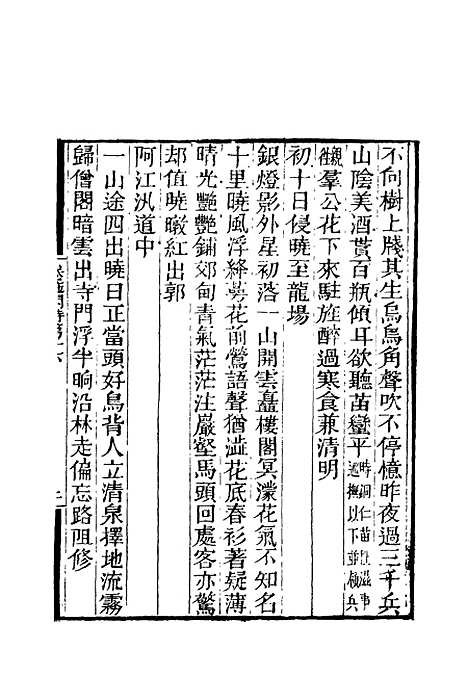 不向樹上牋其生烏烏角聲吹不停憶昨夜過三千兵
山陰美酒貰百瓶傾耳欲聽苗蠻平時銅仁苗滋事巡撫以下並擬兵
觀羣公花下來駐旌醉過寒食兼清明
初十日侵曉至龍場
銀燈影外星初落一山開雲矗樓閣冥濛花氣不知名
十里曉風浮絳萼花前鶯語聲猶澁花底春衫著疑薄
晴光艷艷鋪郊甸青氣茫茫注巖壑馬頭回處客亦驚
却值曉暾紅出郭
阿江汛道中
一山途四出曉日正當頭好鳥背人立清泉擇地流霧
歸僧閣暗雲出寺門浮半晌沿林走偏忘路阻修